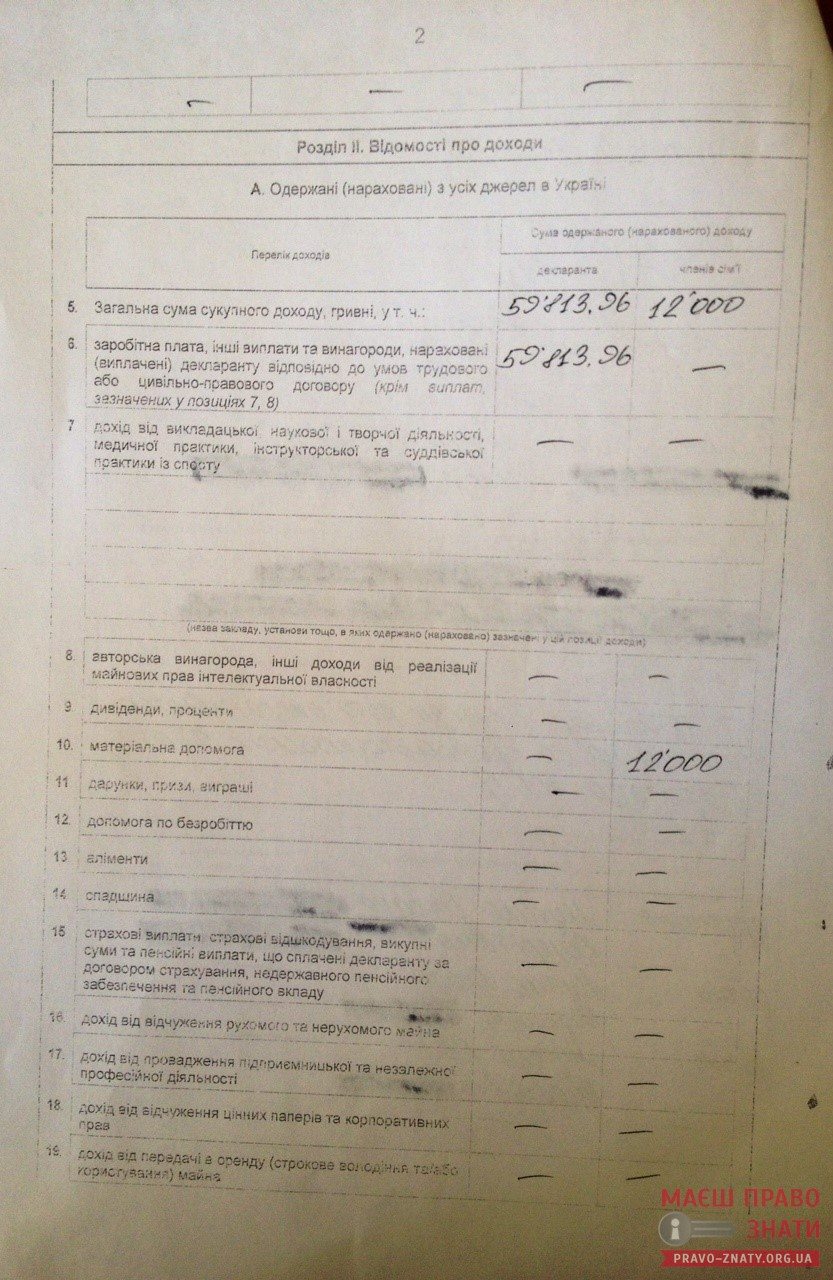 2
— — —
Розділ II. Відомості про доходи
А. Одержані (нараховані) з усіх джерел в Україні
Перелік доходів
Сума одержаного (нарахованого) доходу
декларанта членів сім'ї
5. Загальна сума сукупного доходу, гривні, у т. ч.: 59'813.96 12'000
6. заробітна плата, інші виплати та винагороди, нараховані 59'813.96 —
(виплачені) декларанту відповідно до умов трудового
або цивільно-правового договору (крім виплат,
зазначених у позиціях 7, 8)
7 дохід від викладацької, наукової і творчої діяльності, — —
медичної практики, інструкторської та суддівської
практики із спорту
(назва закладу, установи тощо, в яких одержано (нараховано) зазначені у цій позиції доходи)
8. авторська винагорода, інші доходи від реалізації — —
майнових прав інтелектуальної власності
9. дивіденди, проценти — —
10. матеріальна допомога — 12'000
11 дарунки, призи, виграші — —
12. допомога по безробіттю — —
13 аліменти — —
14 спадщина — —
15 страхові виплати, страхові відшкодування, викупні — —
суми та пенсійні виплати, що сплачені декларанту за
договором страхування, недержавного пенсійного
забезпечення та пенсійного вкладу
16. дохід від відчуження рухомого та нерухомого майна — —
17. дохід від провадження підприємницької та незалежної — —
професійної діяльності
18. дохід від відчуження цінних паперів та корпоративних — —
прав
19. дохід від передачі в оренду (строкове володіння та/або — —
користування) майна
МАЄШ ПРАВО
ЗНАТИ
PRAVO-ZNATY.ORG.UA